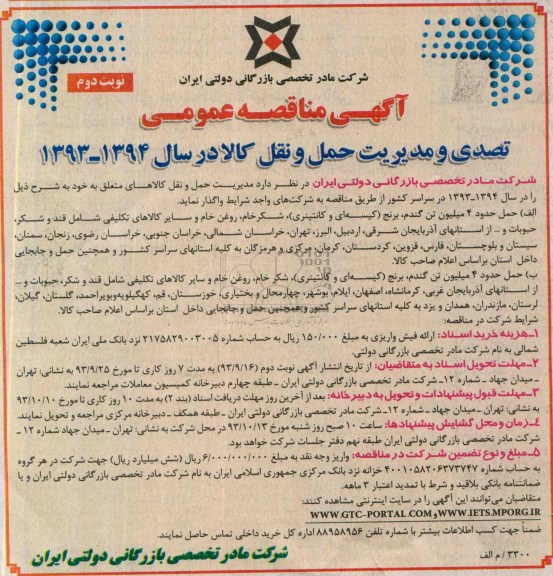 شرکت مادر تخصصی بازرگانی دولتی ایران
نوبت دوم
آگهی مناقصه عمومی
تصدی و مدیریت حمل و نقل کالا در سال ۱۳۹۴-۱۳۹۳
شرکت مادر تخصصی بازرگانی دولتی ایران در نظر دارد مدیریت حمل و نقل کالاهای متعلق به خود به شرح ذیل
را در سال ۱۳۹۴-۱۳۹۳ در سراسر کشور از طریق مناقصه به شرکت‌های واجد شرایط واگذار نماید.
الف) حمل حدود ۴ میلیون تن گندم، برنج (کیسه‌ای و کانتینری)، شکرخام، روغن خام و سایر کالاهای تکلیفی شامل قند و شکر،
حبوبات و ... از استانهای آذربایجان شرقی، اردبیل، البرز، تهران، خراسان شمالی، خراسان جنوبی، خراسان رضوی، زنجان، سمنان،
سیستان و بلوچستان، فارس، قزوین، کردستان، کرمان، مرکزی و هرمزگان به کلیه استانهای سراسر کشور و همچنین حمل و جابجایی
داخل استان براساس اعلام صاحب کالا.
ب) حمل حدود ۴ میلیون تن گندم، برنج (کیسه‌ای و کانتینری)، شکر خام، روغن خام و سایر کالاهای تکلیفی شامل قند و شکر، حبوبات و ...
از استانهای آذربایجان غربی، کرمانشاه، اصفهان، ایلام، بوشهر، چهارمحال و بختیاری، خوزستان، قم، کهگیلویه‌وبویراحمد، گلستان، گیلان،
لرستان، مازندران، همدان و یزد به کلیه استانهای سراسر کشور و همچنین حمل و جابجایی داخل استان براساس اعلام صاحب کالا.
شرایط شرکت در مناقصه:
۱-هزینه خرید اسناد: ارائه فیش واریزی به مبلغ ۱۵۰/۰۰۰ ریال به حساب شماره ۲۱۷۵۸۲۹۰۰۳۰۰۵ نزد بانک ملی ایران شعبه فلسطین
شمالی به نام شرکت مادر تخصصی بازرگانی دولتی.
۲-مهلت تحویل اسناد به متقاضیان: از تاریخ انتشار آگهی نوبت دوم (۹۳/۹/۱۶) به مدت ۷ روز کاری تا مورخ ۹۳/۹/۲۵ به نشانی: تهران
- میدان جهاد - شماره ۱۲- شرکت مادر تخصصی بازرگانی دولتی ایران - طبقه چهارم دبیرخانه کمیسیون معاملات مراجعه نمایند.
۳-مهلت قبول پیشنهادات و تحویل به دبیرخانه: بعد از آخرین روز مهلت دریافت اسناد (بند ۲) به مدت ۱۰ روز کاری تا مورخ ۹۳/۱۰/۱۰
به نشانی: تهران - میدان جهاد - شماره ۱۲- شرکت مادر تخصصی بازرگانی دولتی ایران - طبقه همکف - دبیرخانه مرکزی مراجعه و تحویل نمایند.
۴-زمان و محل گشایش پیشنهادها: ساعت ۱۰ صبح روز شنبه مورخ ۹۳/۱۰/۱۳ در محل شرکت به نشانی: تهران - میدان جهاد شماره ۱۲ -
شرکت مادر تخصصی بازرگانی دولتی ایران طبقه نهم دفتر جلسات شرکت خواهد بود.
۵-مبلغ و نوع تضمین شرکت در مناقصه: واریز وجه نقد به مبلغ ۶/۰۰۰/۰۰۰/۰۰۰ ریال (شش میلیارد ریال) جهت شرکت در هر گروه
به حساب شماره ۴۰۰۱۰۵۸۲۰۶۳۷۳۷۴۷ خزانه نزد بانک مرکزی جمهوری اسلامی ایران به نام شرکت مادر تخصصی بازرگانی دولتی ایران و یا
ضمانتنامه بانکی بلاقید و شرط با تمدید اعتبار ۳ ماهه.
متقاضیان می‌توانند این آگهی را در سایت اینترنتی مشاهده کنند:
WWW.GTC-PORTAL.COM و WWW.IETS.MPORG.IR
ضمناً جهت کسب اطلاعات بیشتر با شماره تلفن ۸۸۹۵۸۹۵۶ اداره کل خرید داخلی تماس حاصل نمایند.
۳۳۰۰ / م الف
شرکت مادر تخصصی بازرگانی دولتی ایران